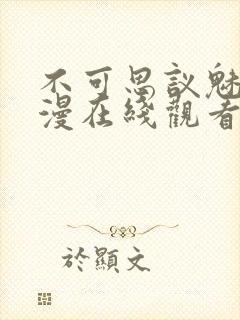 不可思议魅
漫在綫觀看
於顯文